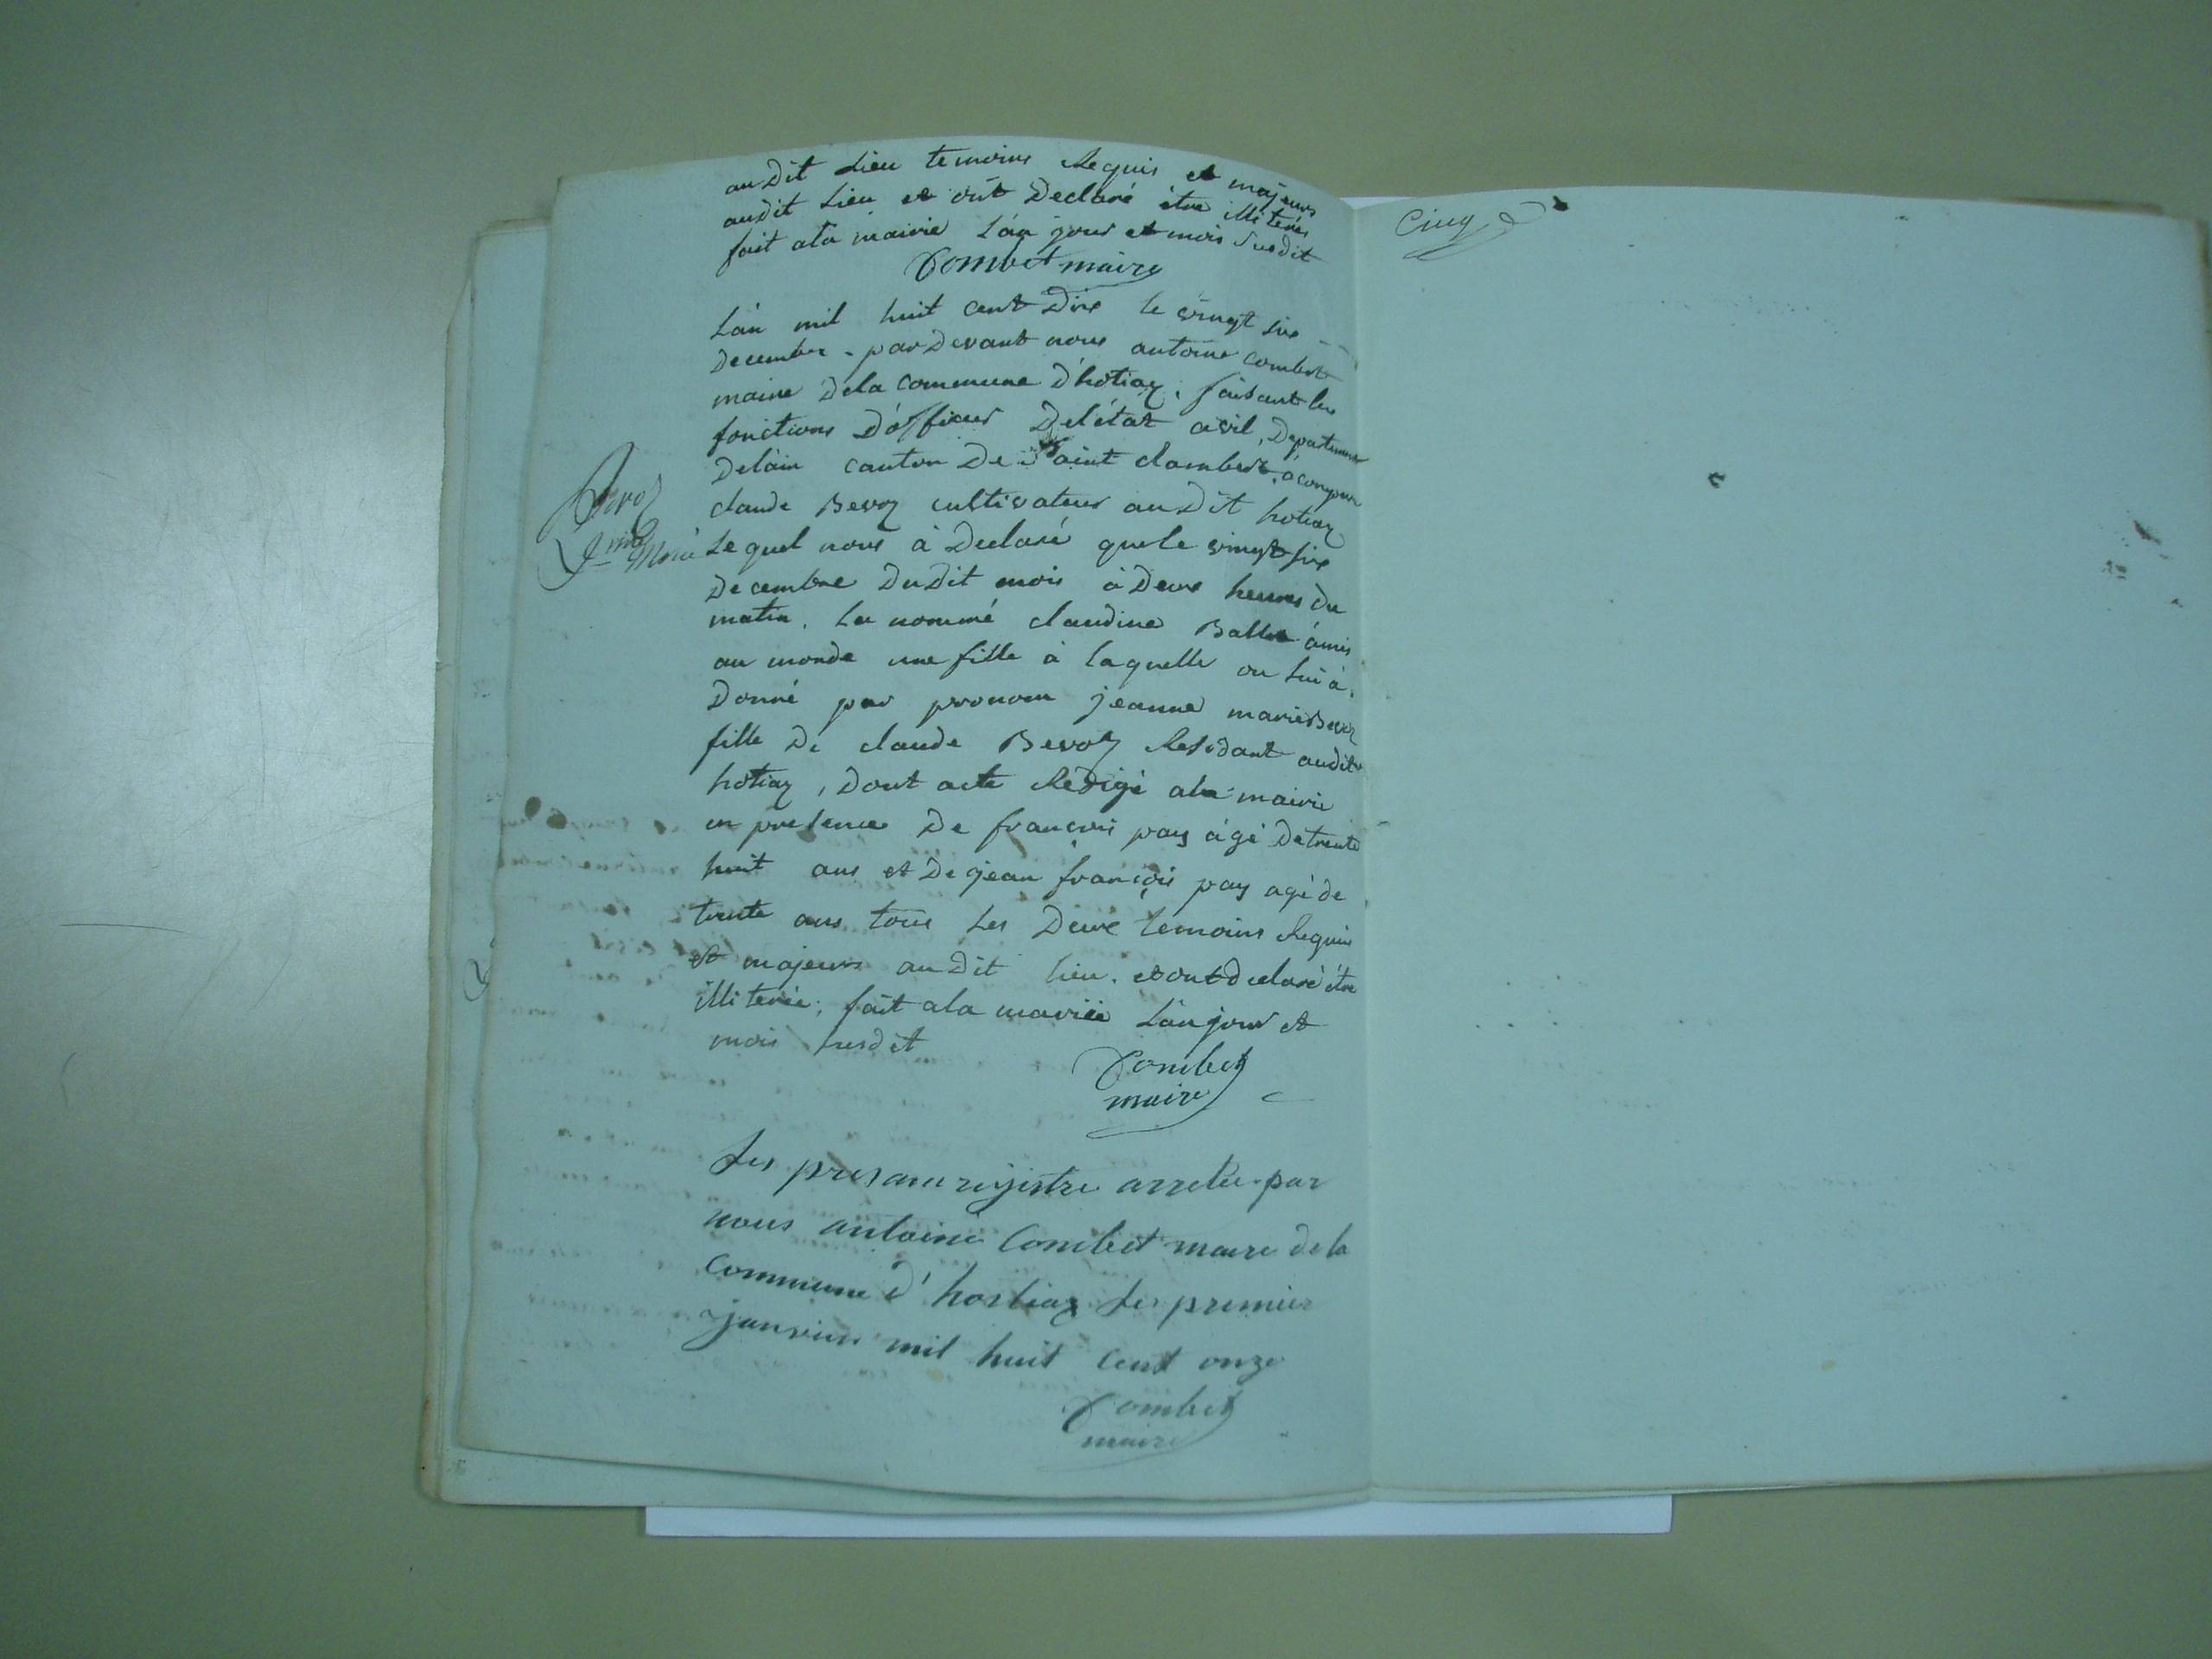 audit Lieu temoins Requis et majeurs
audit Lieu et ont Declaré être illiterés
fait ala mairie L'an jour et mois susdit
Combet maire
L'an mil huit cent Dix le vingt six
Decembre. pardevant nous antoine combet
maire Dela commune D'hotiaz, faisant les
fonctions D'officier Del'état civil, Departement
Delain canton De Saint Rambert, a comparu
claude Bevoz cultivateur audit hotiaz
Bevoz
Jnne Marie
Lequel nous à Declaré que le vingt six
Decembre Dudit mois à Deux heures du
matin. La nommé claudine Ballet àmis
au monde une fille à laquelle on lui à
Donné par pronom jeanne marie Bevoz
fille De claude Bevoz Residant audit
hotiaz, Dont acte Redigé ala mairie
en presence De francois pay àgé Detrente
huit ans et De jean françois pay agé de
trente ans tous Les Deux temoins Requis
et majeurs audit lieu. et ont declaré être
illiterée; fait ala mairie L'an jour et
mois susdit
Combet
maire
Les presant rejistre arretée par
nous antoine Combet maire de la
commune d'hostiaz Les premier
janvier mil huit cent onze
Combet
maire
Cinq